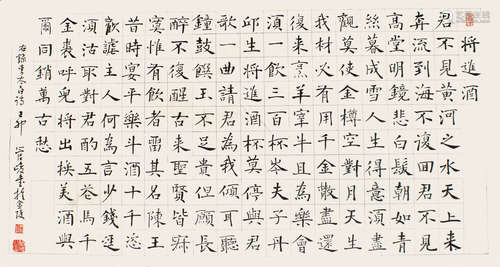 將進酒
君不見黃河之水天上來
奔流到海不復回君不見
高堂明鏡悲白髮朝如青
絲暮成雪人生得意須盡
歡莫使金樽空對月天生
我材必有用千金散盡還
復來烹羊宰牛且為樂會
須一飲三百杯岑夫子丹
邱生將進酒杯莫停與君
歌一曲請君為我傾耳聽
鐘鼓饌玉不足貴但願長
醉不復醒古來聖賢皆寂
寞惟有飲者留其名陳王
昔時宴平樂斗酒十千恣
歡謔主人何為言少錢逕
須沽取對君酌五花馬千
金裘呼兒將出換美酒與
爾同銷萬古愁
右錄李太白詩